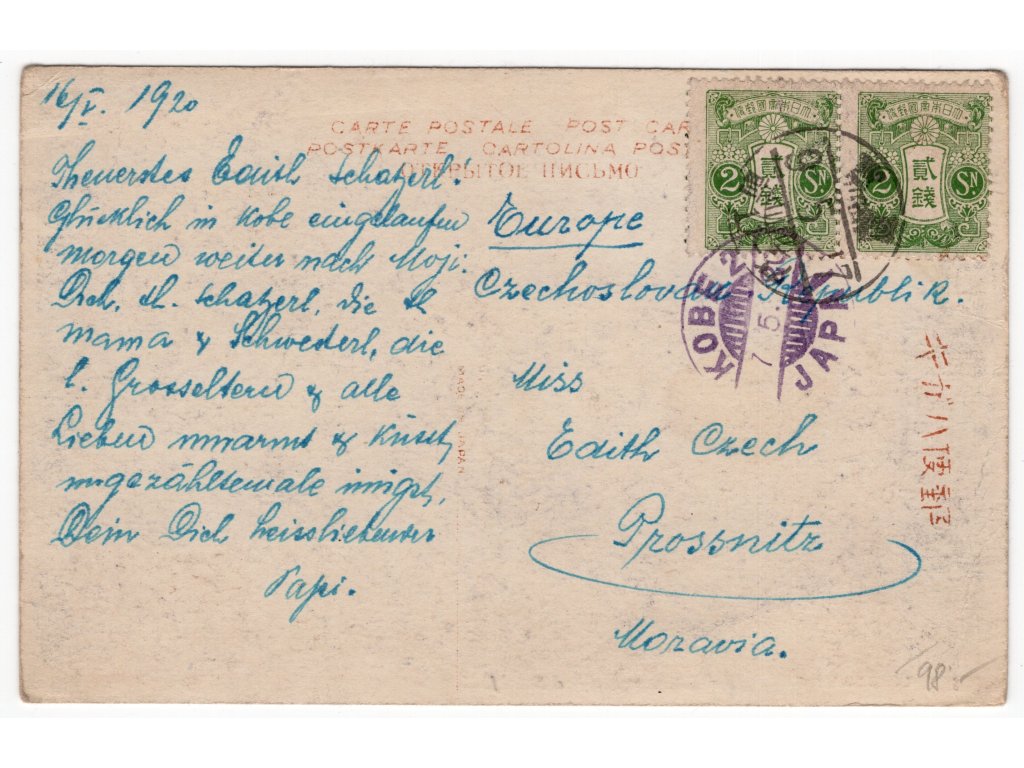 16/V. 1920
CARTE POSTALE POST CAR
POSTKARTE CARTOLINA POST
ОТКРЫТОЕ ПИСЬМО
Theuerstes Edith Schatzerl!
Glücklich in Kobe eingelaufen
morgen weiter nach Moji.
Dich, th. Schatzerl, die th
Mama & Schwesterl, die
l. Grosseltern & alle
Lieben umarmt & küsst,
ungezähltemale innigst,
Dein Dich heissliebender
Papi.
Europe
Czechoslovak Republik.
Miss
Edith Czech
Prossnitz
Moravia.
大日本帝國郵便
貳錢
2 SN
大日本帝國郵便
貳錢
2 SN
KOBE
7. 5.
JAPAN
きがは便郵
98.-